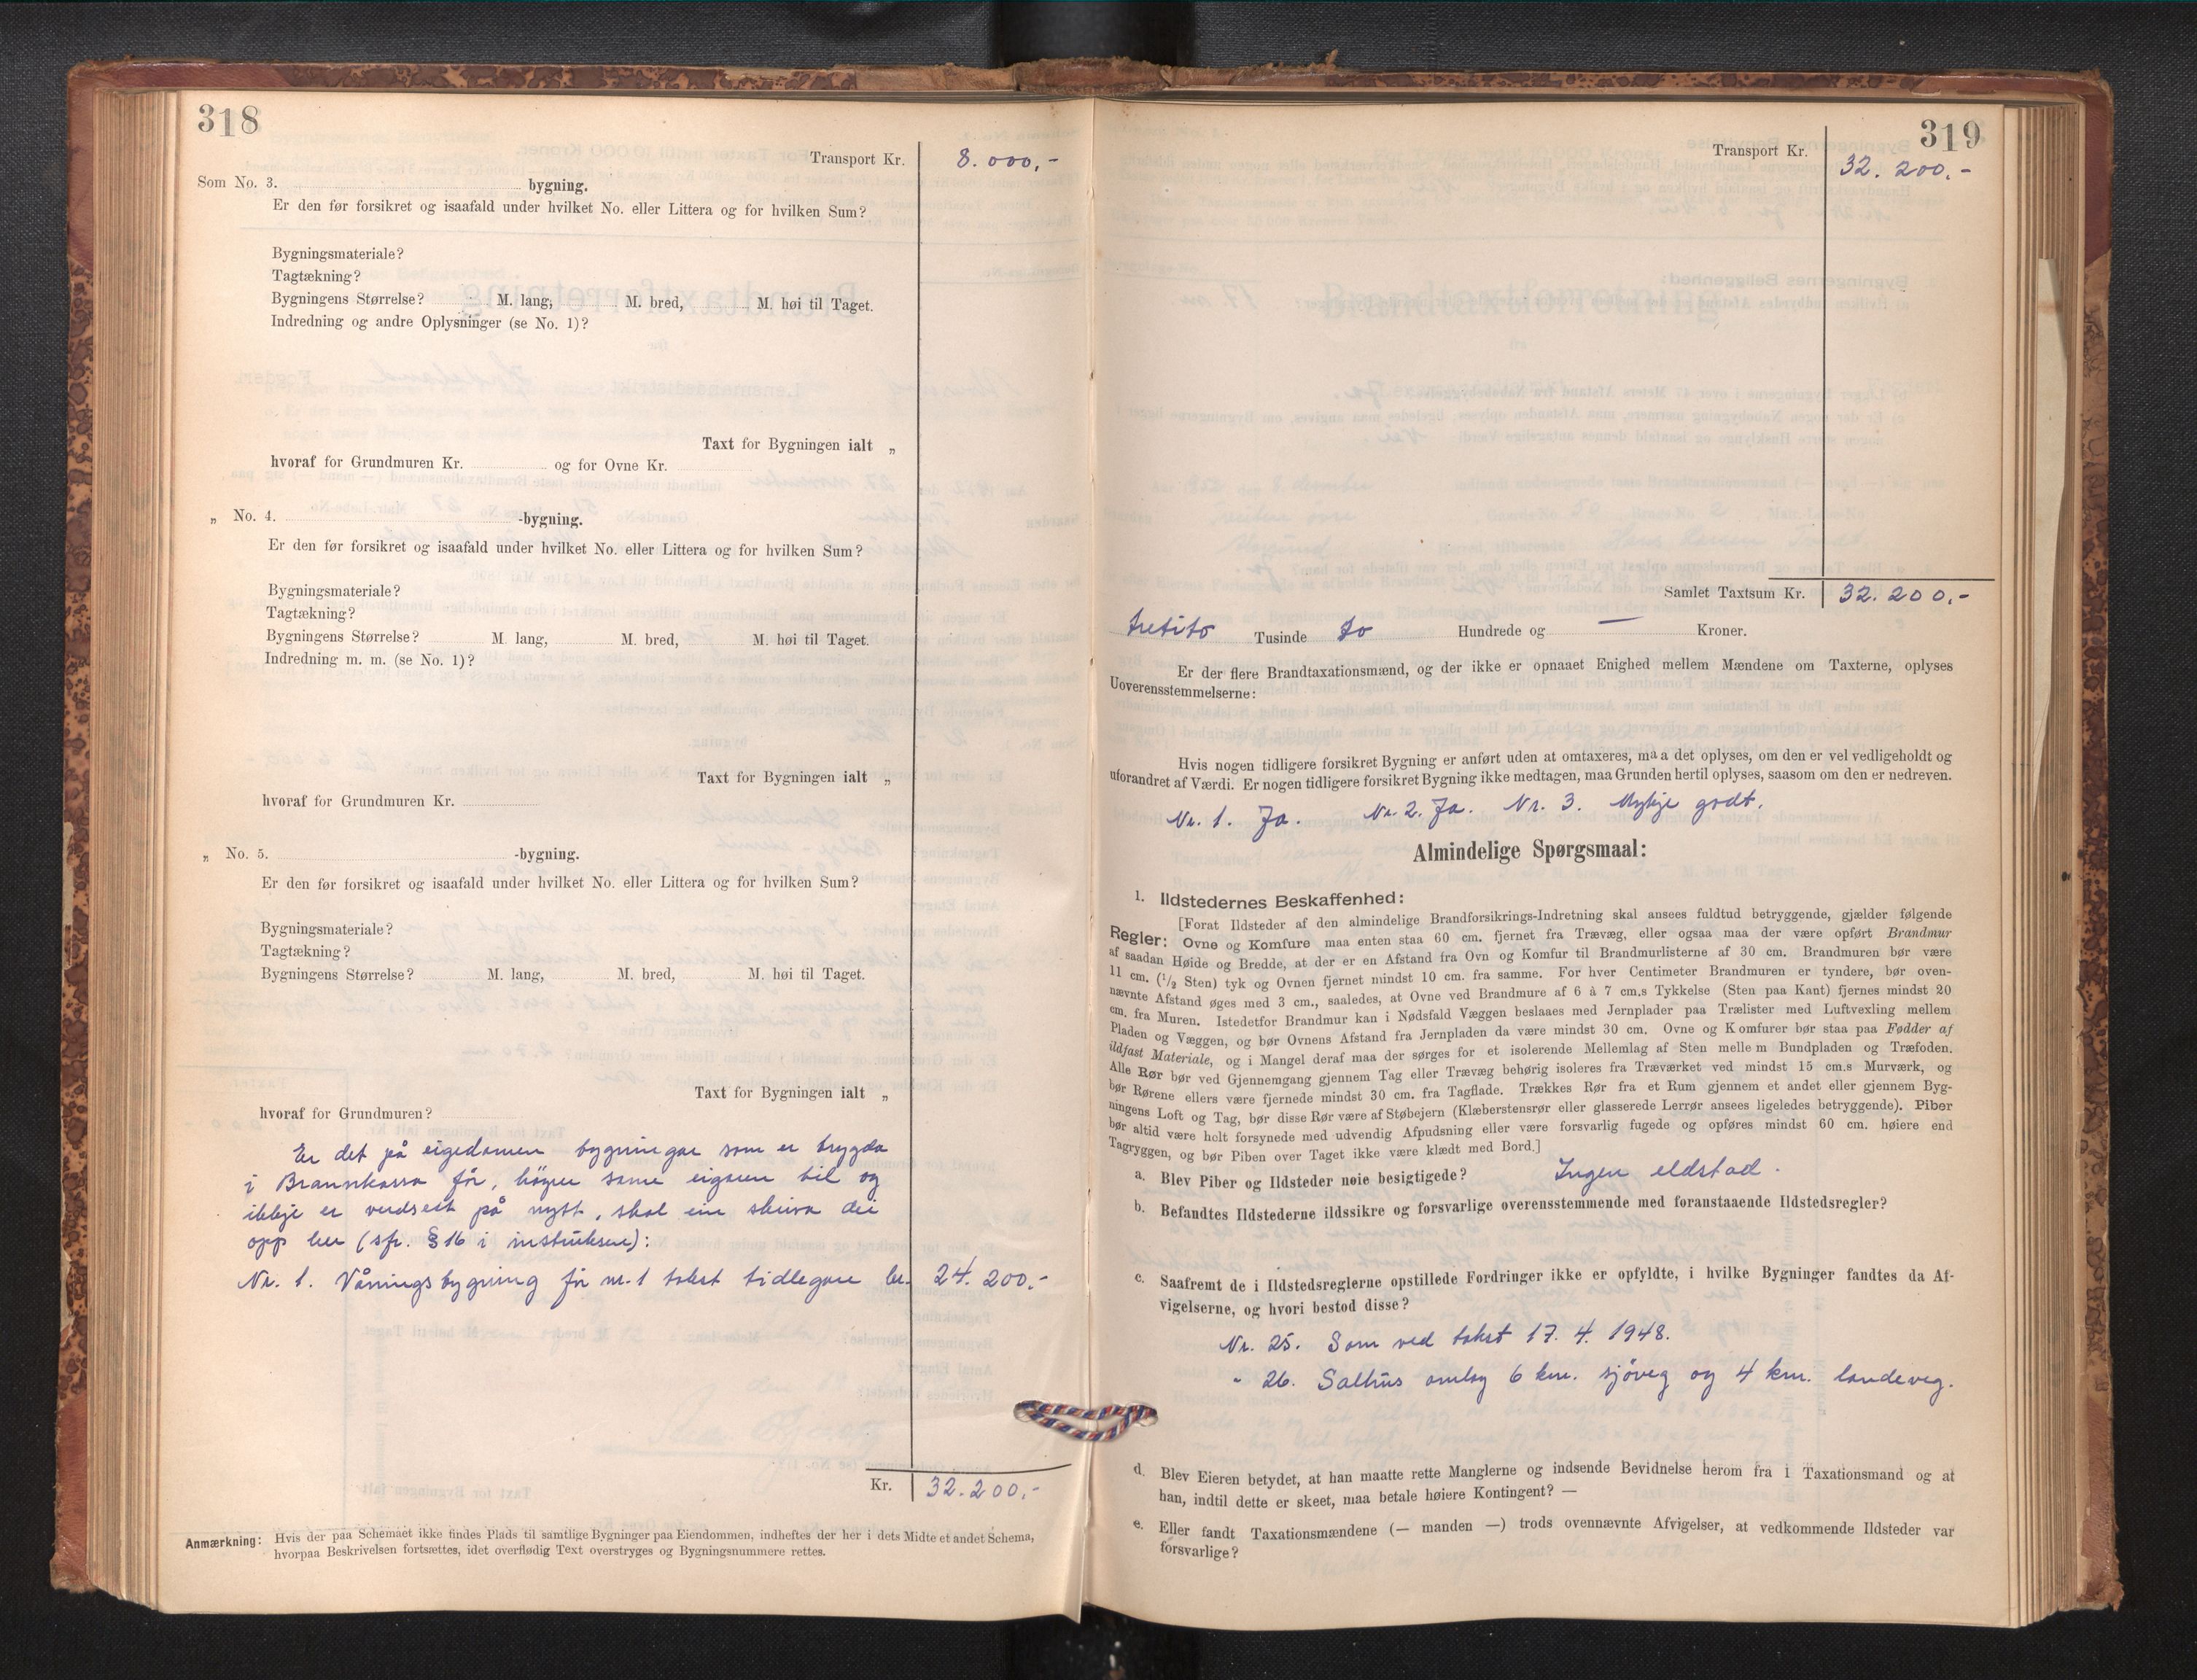 318
Transport Kr. 8.000,-
Som No. 3. bygning.
Er den før forsikret og isaafald under hvilket No. eller Littera og for hvilken Sum?
Bygningsmateriale?
Tagtækning?
Bygningens Størrelse? M. lang, M. bred, M. høi til Taget.
Indredning og andre Oplysninger (se No. 1)?
Taxt for Bygningen ialt „
hvoraf for Grundmuren Kr. og for Ovne Kr.
„ No. 4. -bygning.
Er den før forsikret og isaafald under hvilket No. eller Littera og for hvilken Sum?
Bygningsmateriale?
Tagtækning?
Bygningens Størrelse? M. lang, M. bred, M. høi til Taget.
Indredning m. m. (se No. 1)?
Taxt for Bygningen ialt „
hvoraf for Grundmuren Kr.
„ No. 5. -bygning.
Er den før forsikret og isaafald under hvilket No. eller Littera og for hvilken Sum?
Bygningsmateriale?
Tagtækning?
Bygningens Størrelse? M. lang, M. bred, M. høi til Taget.
Taxt for Bygningen ialt „
hvoraf for Grundmuren?
Er det på eigedomen bygningar som er trygda
i Brannkassa før, høyrer same eigaren til og
ikkje er verdsett på nytt, skal ein skriva dei
opp her (sfr. § 16 i instruksen):
Nr. 1. Våningsbygning før nr. 1 takst tidlegare kr. 24.200,-
Kr. 32.200,-
Anmærkning: Hvis der paa Schemaet ikke findes Plads til samtlige Bygninger paa Eiendommen, indheftes der her i dets Midte et andet Schema,
hvorpaa Beskrivelsen fortsættes, idet overflødig Text overstryges og Bygningsnummere rettes.
319
Transport Kr. 32.200,-
Samlet Taxtsum Kr. 32.200,-
tretito Tusinde to Hundrede og — Kroner.
Er der flere Brandtaxationsmænd, og der ikke er opnaaet Enighed mellem Mændene om Taxterne, oplyses
Uoverensstemmelserne:
Hvis nogen tidligere forsikret Bygning er anført uden at omtaxeres, maa det oplyses, om den er vel vedligeholdt og
uforandret af Værdi. Er nogen tidligere forsikret Bygning ikke medtagen, maa Grunden hertil oplyses, saasom om den er nedreven.
Nr. 1. Ja. Nr. 2. Ja. Nr. 3. Mykje godt.
Almindelige Spørgsmaal:
1. Ildstedernes Beskaffenhed:
[Forat Ildsteder af den almindelige Brandforsikrings-Indretning skal ansees fuldtud betryggende, gjælder følgende
Regler: Ovne og Komfure maa enten staa 60 cm. fjernet fra Trævæg, eller ogsaa maa der være opført Brandmur
af saadan Høide og Bredde, at der er en Afstand fra Ovn og Komfur til Brandmurlisterne af 30 cm. Brandmuren bør være
11 cm. (1/2 Sten) tyk og Ovnen fjernet mindst 10 cm. fra samme. For hver Centimeter Brandmuren er tyndere, bør oven-
nævnte Afstand øges med 3 cm., saaledes, at Ovne ved Brandmure af 6 à 7 cm.s Tykkelse (Sten paa Kant) fjernes mindst 20
cm. fra Muren. Istedetfor Brandmur kan i Nødsfald Væggen beslaaes med Jernplader paa Trælister med Luftvexling mellem
Pladen og Væggen, og bør Ovnens Afstand fra Jernpladen da være mindst 30 cm. Ovne og Komfurer bør staa paa Fødder af
ildfast Materiale, og i Mangel deraf maa der sørges for et isolerende Mellemlag af Sten mellem Bundpladen og Træfoden.
Alle Rør bør ved Gjennemgang gjennem Tag eller Trævæg behørig isoleres fra Træværket ved mindst 15 cm.s Murværk, og
bør Rørene ellers være fjernede mindst 30 cm. fra Tagflade. Trækkes Rør fra et Rum gjennem et andet eller gjennem Byg-
ningens Loft og Tag, bør disse Rør være af Støbejern (Klæberstensrør eller glasserede Lerrør ansees ligeledes betryggende). Piber
bør altid være helt forsynede med udvendig Afpudsning eller være forsvarlig fugede og opføres mindst 60 cm. høiere end
Tagryggen, og bør Piben over Taget ikke være klædt med Bord.]
a. Blev Piber og Ildsteder nøie besigtigede? Ingen eldstad.
b. Befandtes Ildstederne ildssikre og forsvarlige overensstemmende med foranstaaende Ildstedsregler?
c. Saafremt de i Ildstedsreglerne opstillede Fordringer ikke er opfyldte, i hvilke Bygninger fandtes da Af-
vigelserne, og hvori bestod disse?
Nr. 25. Som ved takst 17. 4. 1948.
" 26. Salhus omlag 6 km. sjøveg og 4 km. landeveg.
d. Blev Eieren betydet, at han maatte rette Manglerne og indsende Bevidnelse herom fra 1 Taxationsmand og at
han, indtil dette er skeet, maa betale høiere Kontingent? —
e. Eller fandt Taxationsmændene (— manden —) trods ovennævnte Afvigelser, at vedkommende Ildsteder var
forsvarlige?